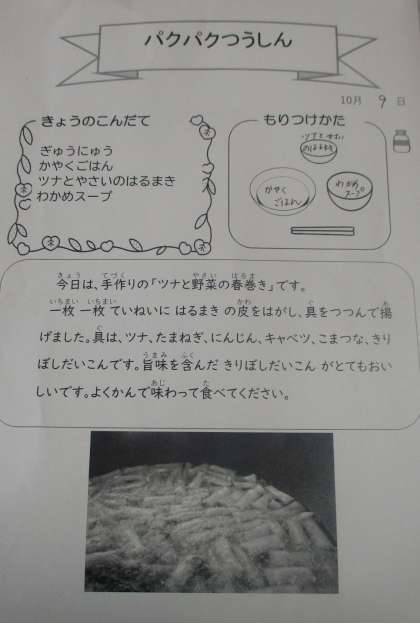 パクパクつうしん
10月 9 日
きょうのこんだて
ぎゅうにゅう
かやくごはん
ツナとやさいのはるまき
わかめスープ
もりつけかた
ツナとやさい
のはるまき
かやく
ごはん
わかめ
スープ
今日は、手作りの「ツナと野菜の春巻き」です。
一枚 一枚 ていねいに はるまき の 皮をはがし、具をつつんで揚
げました。具は、ツナ、たまねぎ、にんじん、キャベツ、こまつな、きり
ぼしだいこんです。旨味を含んだ きりぼしだいこん がとてもおい
しいです。よくかんで味わって食べてください。